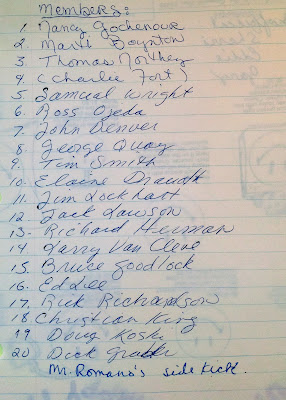 Members:
1. Nancy Gochenour
2. Marti Boynton
3 Thomas Northey
4 (Charlie Fort)
5 Samuel Wright
6. Ross Ojeda
7. John Denver
8 George Quay
9. Tim Smith
10. Elaine
11. Jim Lockhart
12 Jack Lawson
13. Richard Heiman
14 Larry Van Cleve
15. Bruce Goodlock
16. Ed Lee
17. Rick Richardson
18. Christian King
19 Doug Koski
20 Dick
Mr. Romano's side kick.